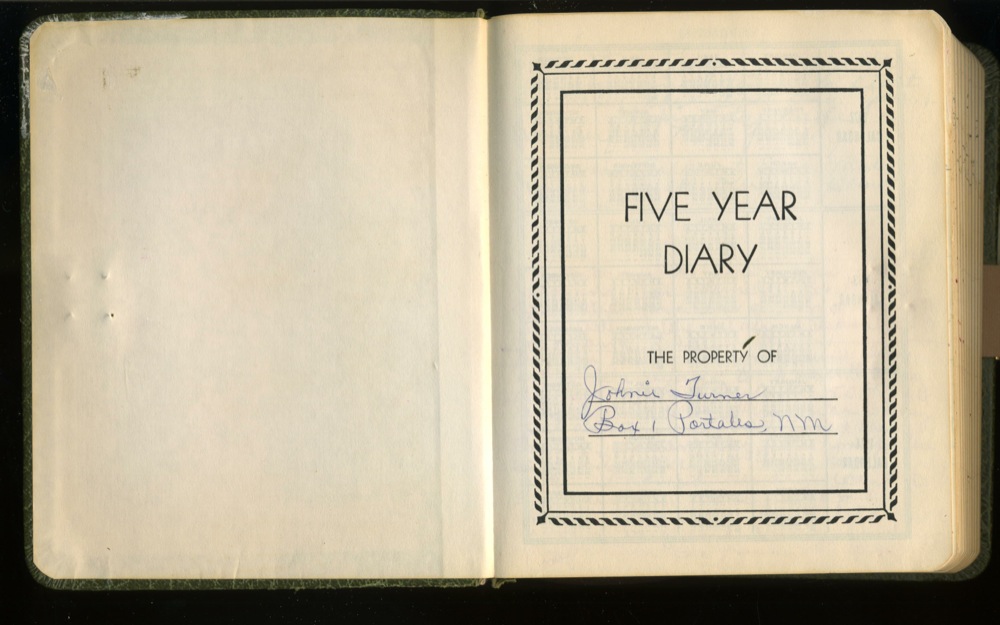 FIVE YEAR
DIARY
THE PROPERTY OF
Johnie Turner
Box 1 Portales, NM